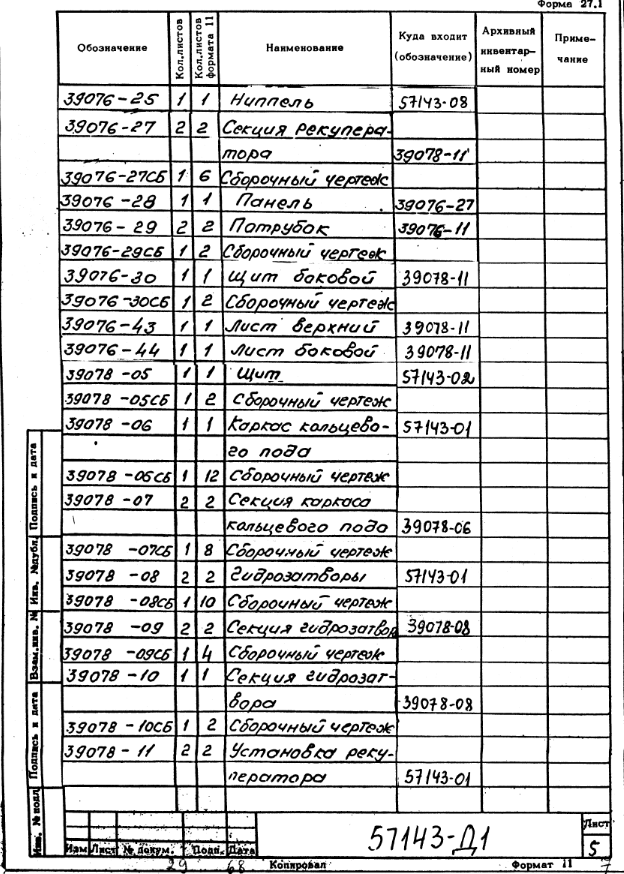 Форма 27.1
Обозначение Кол.листов Кол.листов формата 11 Наименование Куда входит (обозначение) Архивный инвентарный номер Примечание
39076-25 1 1 Ниппель 57143-08
39076-27 2 2 Секция рекупера-
тора 39078-11
39076-27СБ 1 6 Сборочный чертеж
39076-28 1 1 Панель 39076-27
39076-29 2 2 Патрубок 39076-11
39076-29СБ 1 2 Сборочный чертеж
39076-30 1 1 Щит боковой 39078-11
39076-30СБ 1 2 Сборочный чертеж
39076-43 1 1 Лист верхний 39078-11
39076-44 1 1 Лист боковой 39078-11
39078-05 1 1 Щит 57143-02
39078-05СБ 1 2 Сборочный чертеж
39078-06 1 1 Каркас кольцево- 57143-01
го пода
39078-06СБ 1 12 Сборочный чертеж
39078-07 2 2 Секция каркаса
кольцевого пода 39078-06
39078-07СБ 1 8 Сборочный чертеж
39078-08 2 2 Гидрозатворы 57143-01
39078-08СБ 1 10 Сборочный чертеж
39078-09 2 2 Секция гидрозатвор 39078-08
39078-09СБ 1 4 Сборочный чертеж
39078-10 1 1 Секция гидрозат-
вора 39078-08
39078-10СБ 1 2 Сборочный чертеж
39078-11 2 2 Установка реку-
ператора 57143-01
Инв. № подл. Подпись и дата Взам.инв. № Инв. №дубл. Подпись и дата
57143-Д1
Лист
5
Изм Лист № докум. Подп. Дата
29 68 Копировал Формат 11 7